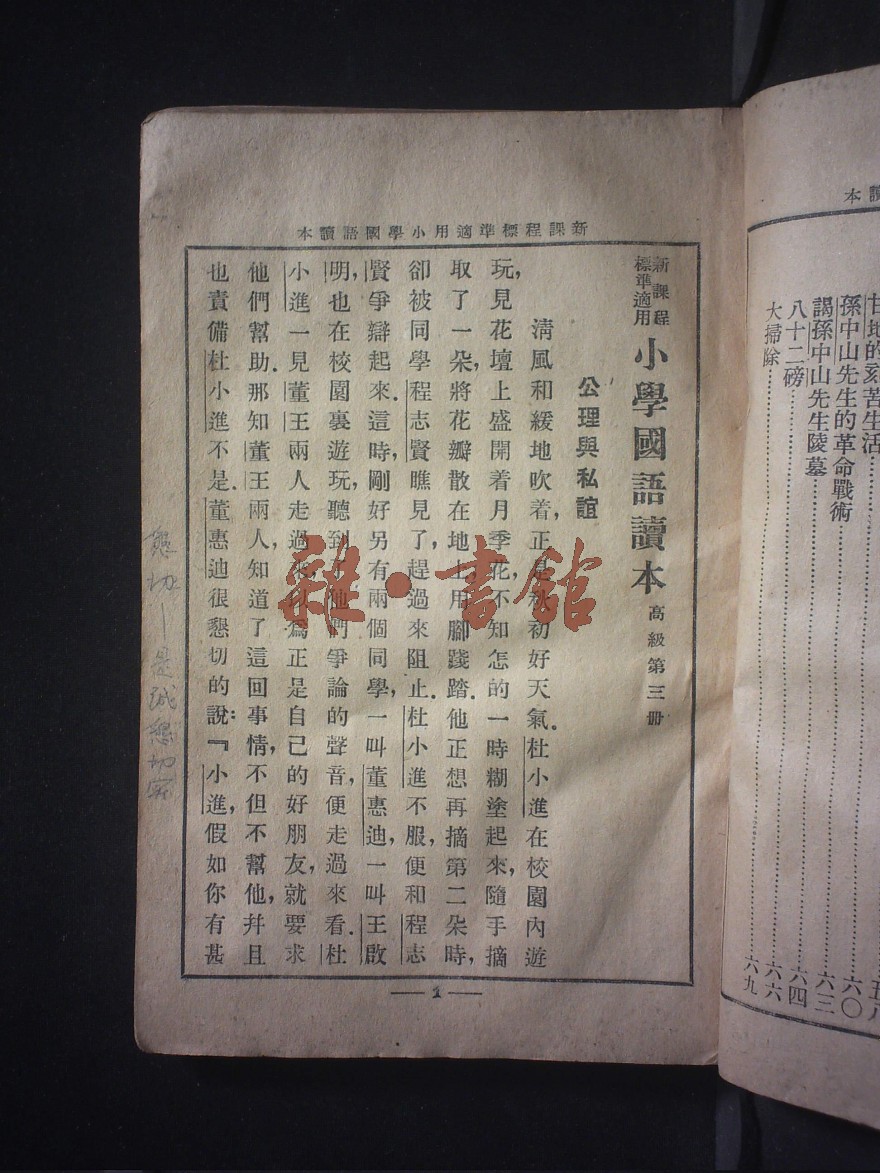 新課程標準適用小學國語讀本
新課程標準適用 小學國語讀本 高級第三冊
公理與私誼
清風和緩地吹着,正是秋初好天氣.杜小進在校園內遊
玩,見花壇上盛開着月季花,不知怎的一時糊塗起來,隨手摘
取了一朵,將花瓣散在地上,用腳踐踏.他正想再摘第二朵時,
卻被同學程志賢瞧見了,趕過來阻止.杜小進不服,便和程志
賢爭辯起來.這時,剛好另有兩個同學,一叫董惠迪,一叫王啟
明,也在校園裏遊玩,聽到了他們爭論的聲音,便走過來看.杜
小進一見董王兩人走過來,以爲正是自己的好朋友,就要求
他們幫助.那知董王兩人,知道了這回事情,不但不幫他,幷且
也責備杜小進不是.董惠迪很懇切的說:『小進,假如你有甚
— 1 —
懇切—是誠懇切實
雜·書館
本讀
甘地的刻苦生活 五八
孫中山先生的革命戰術 六〇
謁孫中山先生陵墓 六三
八十二磅 六四
大掃除 六六
六九